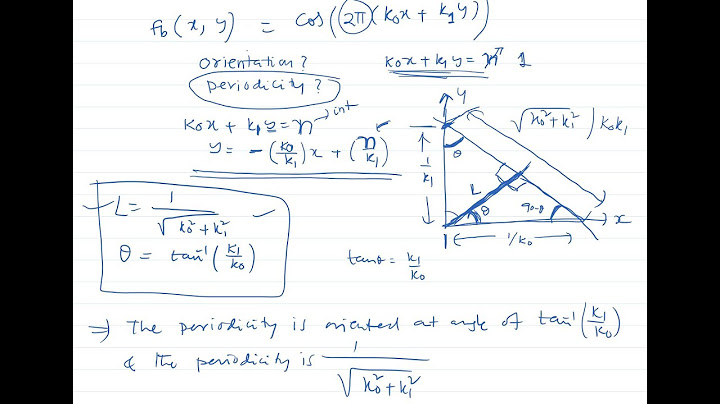 f_b(x, y) = cos(2π(k₀x + k₁y))
orientation?
periodicity?
k₀x + k₁y = 1
k₀x + k₁y = n → int
y = -(k₀/k₁)x + (n/k₁)
L = 1/√(k₀² + k₁²)
θ = tan⁻¹(k₁/k₀)
y
√(k₀²+k₁²) / k₀k₁
θ
1/k₁
L
θ
90-θ
x
1/k₀
tanθ = k₁/k₀
⇒ The periodicity is oriented at angle of tan⁻¹(k₁/k₀)
& the periodicity is 1/√(k₀² + k₁²)